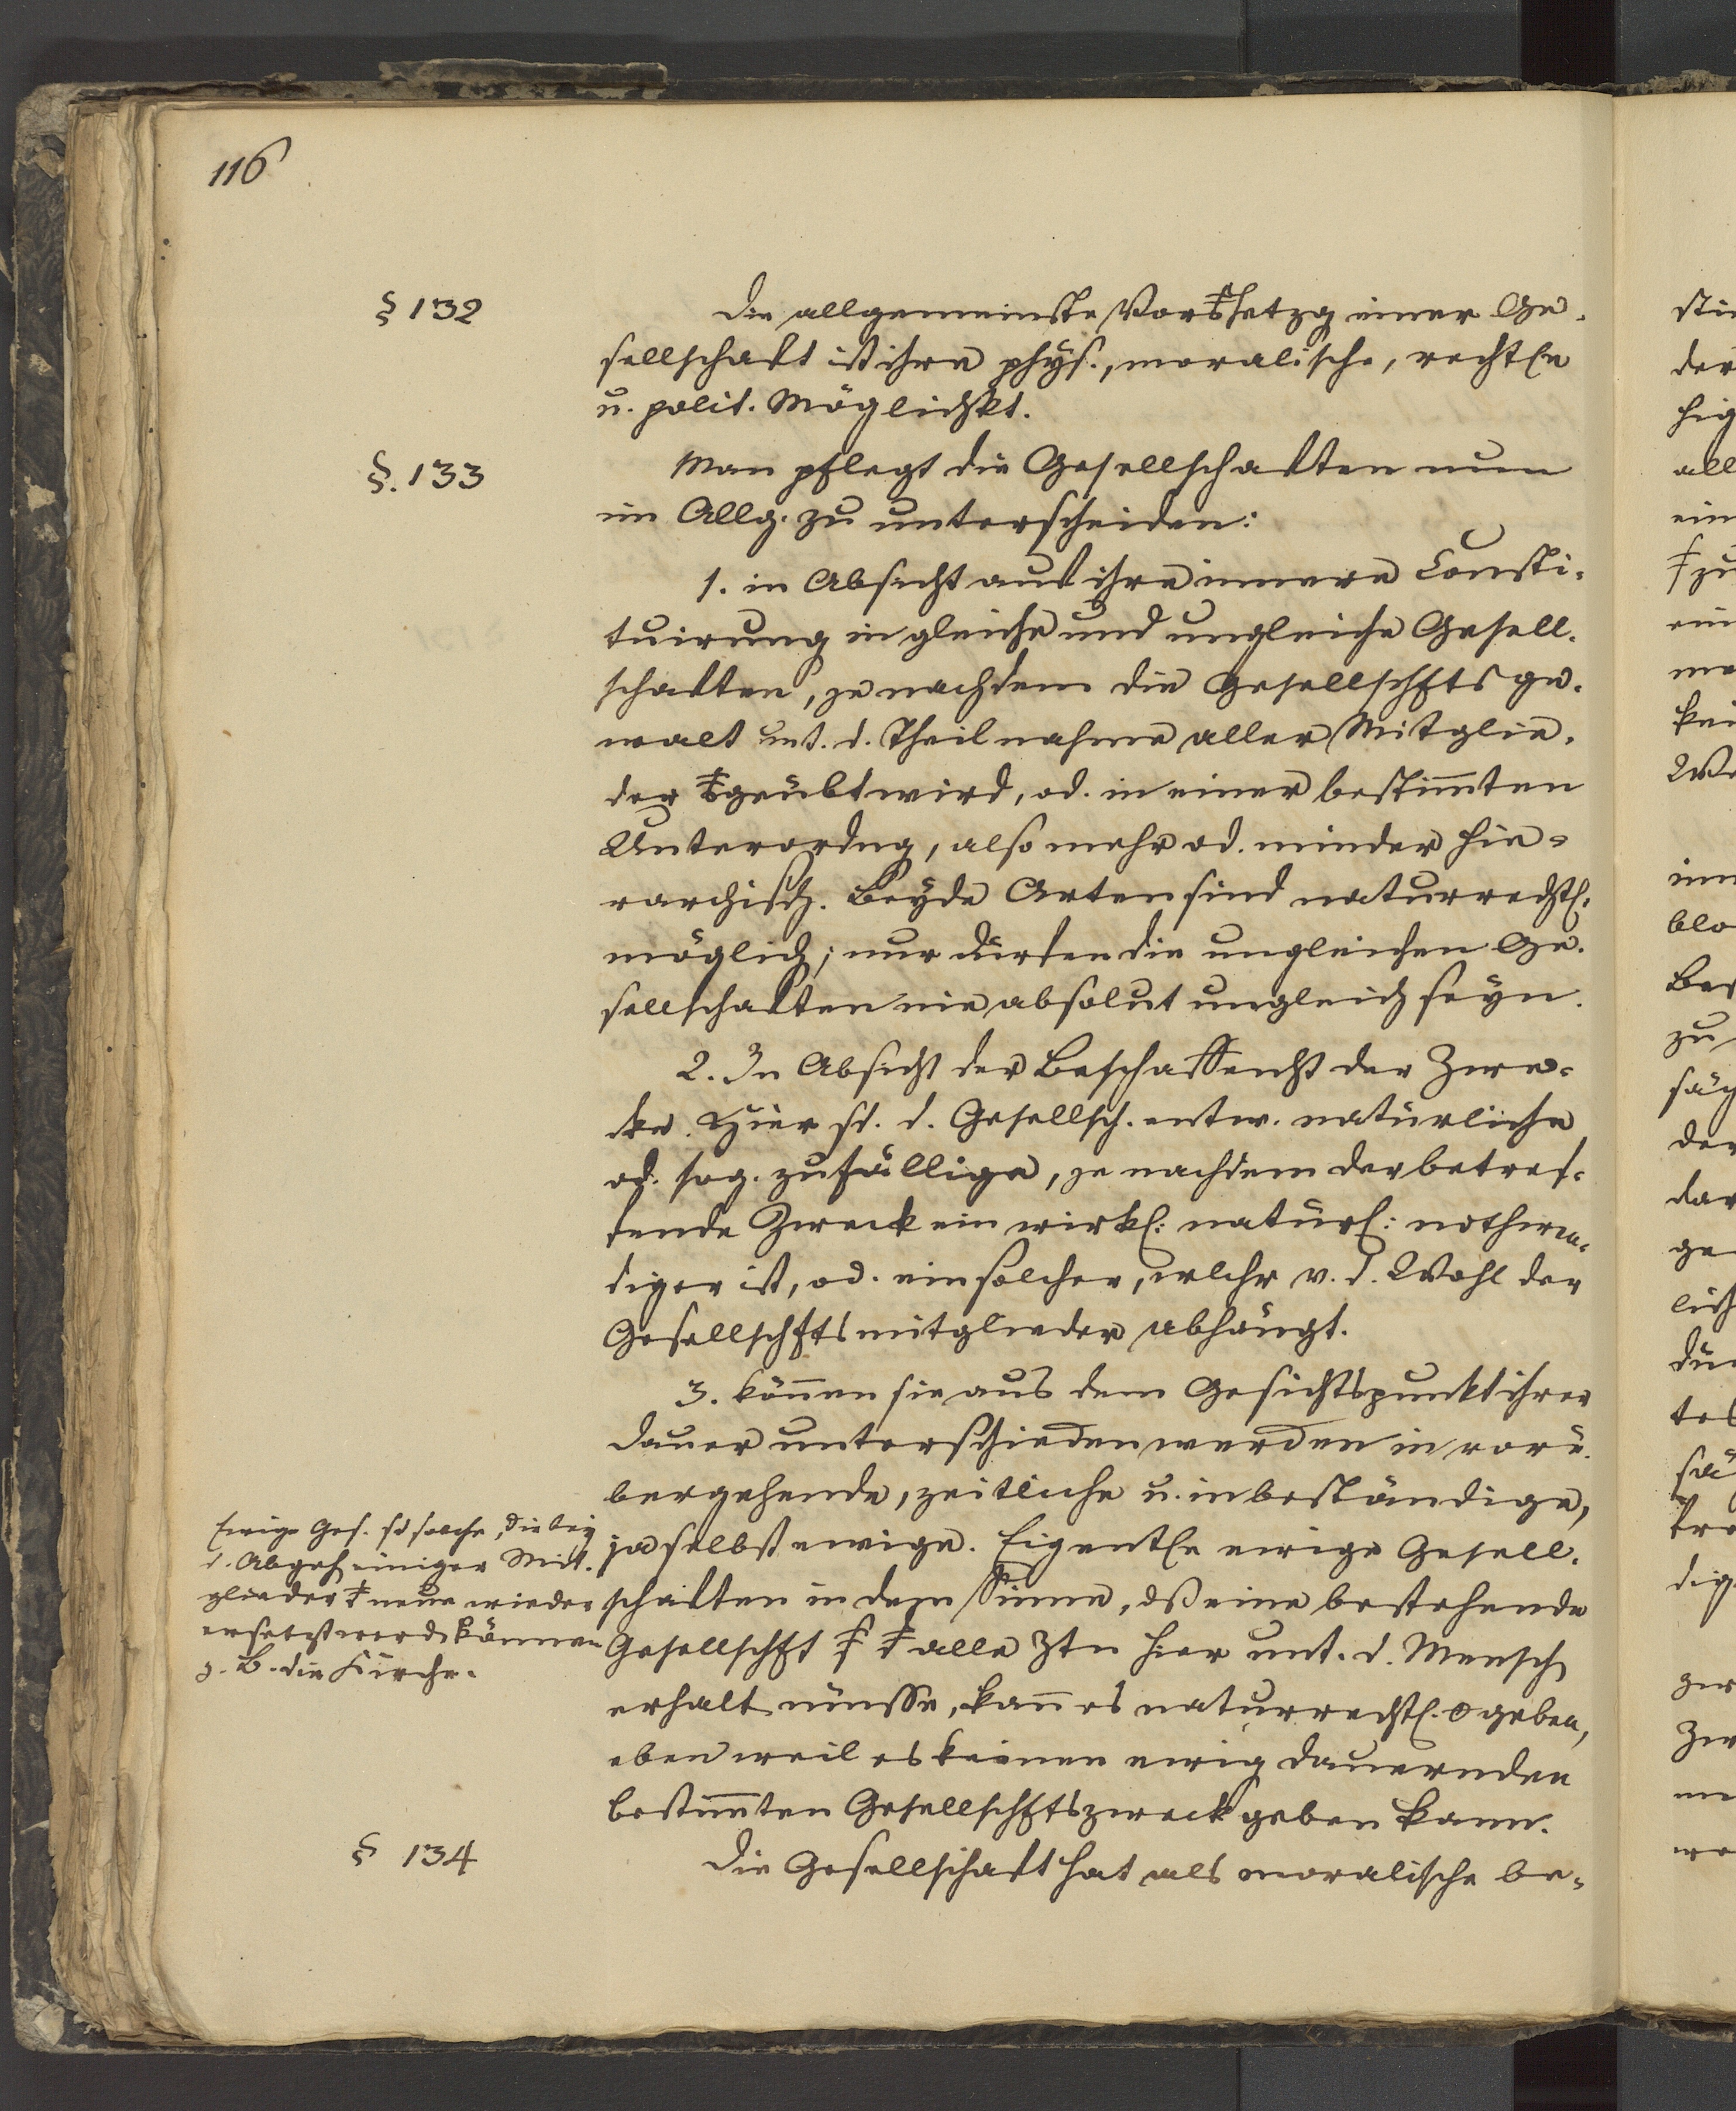 116
§ 132
Die allgemeinste Vors‡setzg einer Ge-
sellschaft ist ihre phys., moralische, rechtle
u. polit. Möglichkt.
§. 133
Man pflegt die Gesellschaften nun
im Allg. zu unterscheiden:
1. in Absicht auf ihre innere Consti-
tuirung in gleiche und ungleiche Gesell-
schaften, je nachdem die Gesellschfts ge-
walt unt. d. Theilnahme aller Mitglie-
der geübt wird, od. in einer bestim̄ten
Unterordng, also mehr od. minder hie-
rarchisch. Beyde Arten sind naturrechtl:
möglich; nur dürfen die ungleichen Ge-
sellschaften nie absolut ungleich seyn.
2. In Absicht der Beschaffenht der Zwe-
cke. Hier sd. d. Gesellsch. entw. natürliche
od. sog. zufällige, je nachdem der betref-
fende Zweck ein wirkl: natürl: nothwen-
diger ist, od. ein solcher, welchr v. d. Wahl der
Gesellschftsmitglieder abhängt.
3. kön̄en sie aus dem Gesichtspunkt ihrer
Dauer unterschieden werden in vorü-
bergehende, zeitliche u. in beständige,
ja selbst ewige. Eigentle ewige Gesell-
schaften in dem Sinne, dß eine bestehende
Gesellschft ‡ ‡ alle Ztn hier unt. d. Mensch
erhalt müsse, kan̄ es naturrechtl. 0 geben,
eben weil es keinen ewig dauernden
bestim̄ten Gesellschftszweck geben kann.
Ewige Ges. sd solche, die bey
d. Abgeh einiger Mit-
glieder ‡ neue wieder
ersetzt werd können
z. B. die Kirche.
§ 134
Die Gesellschaft hat als moralische be-